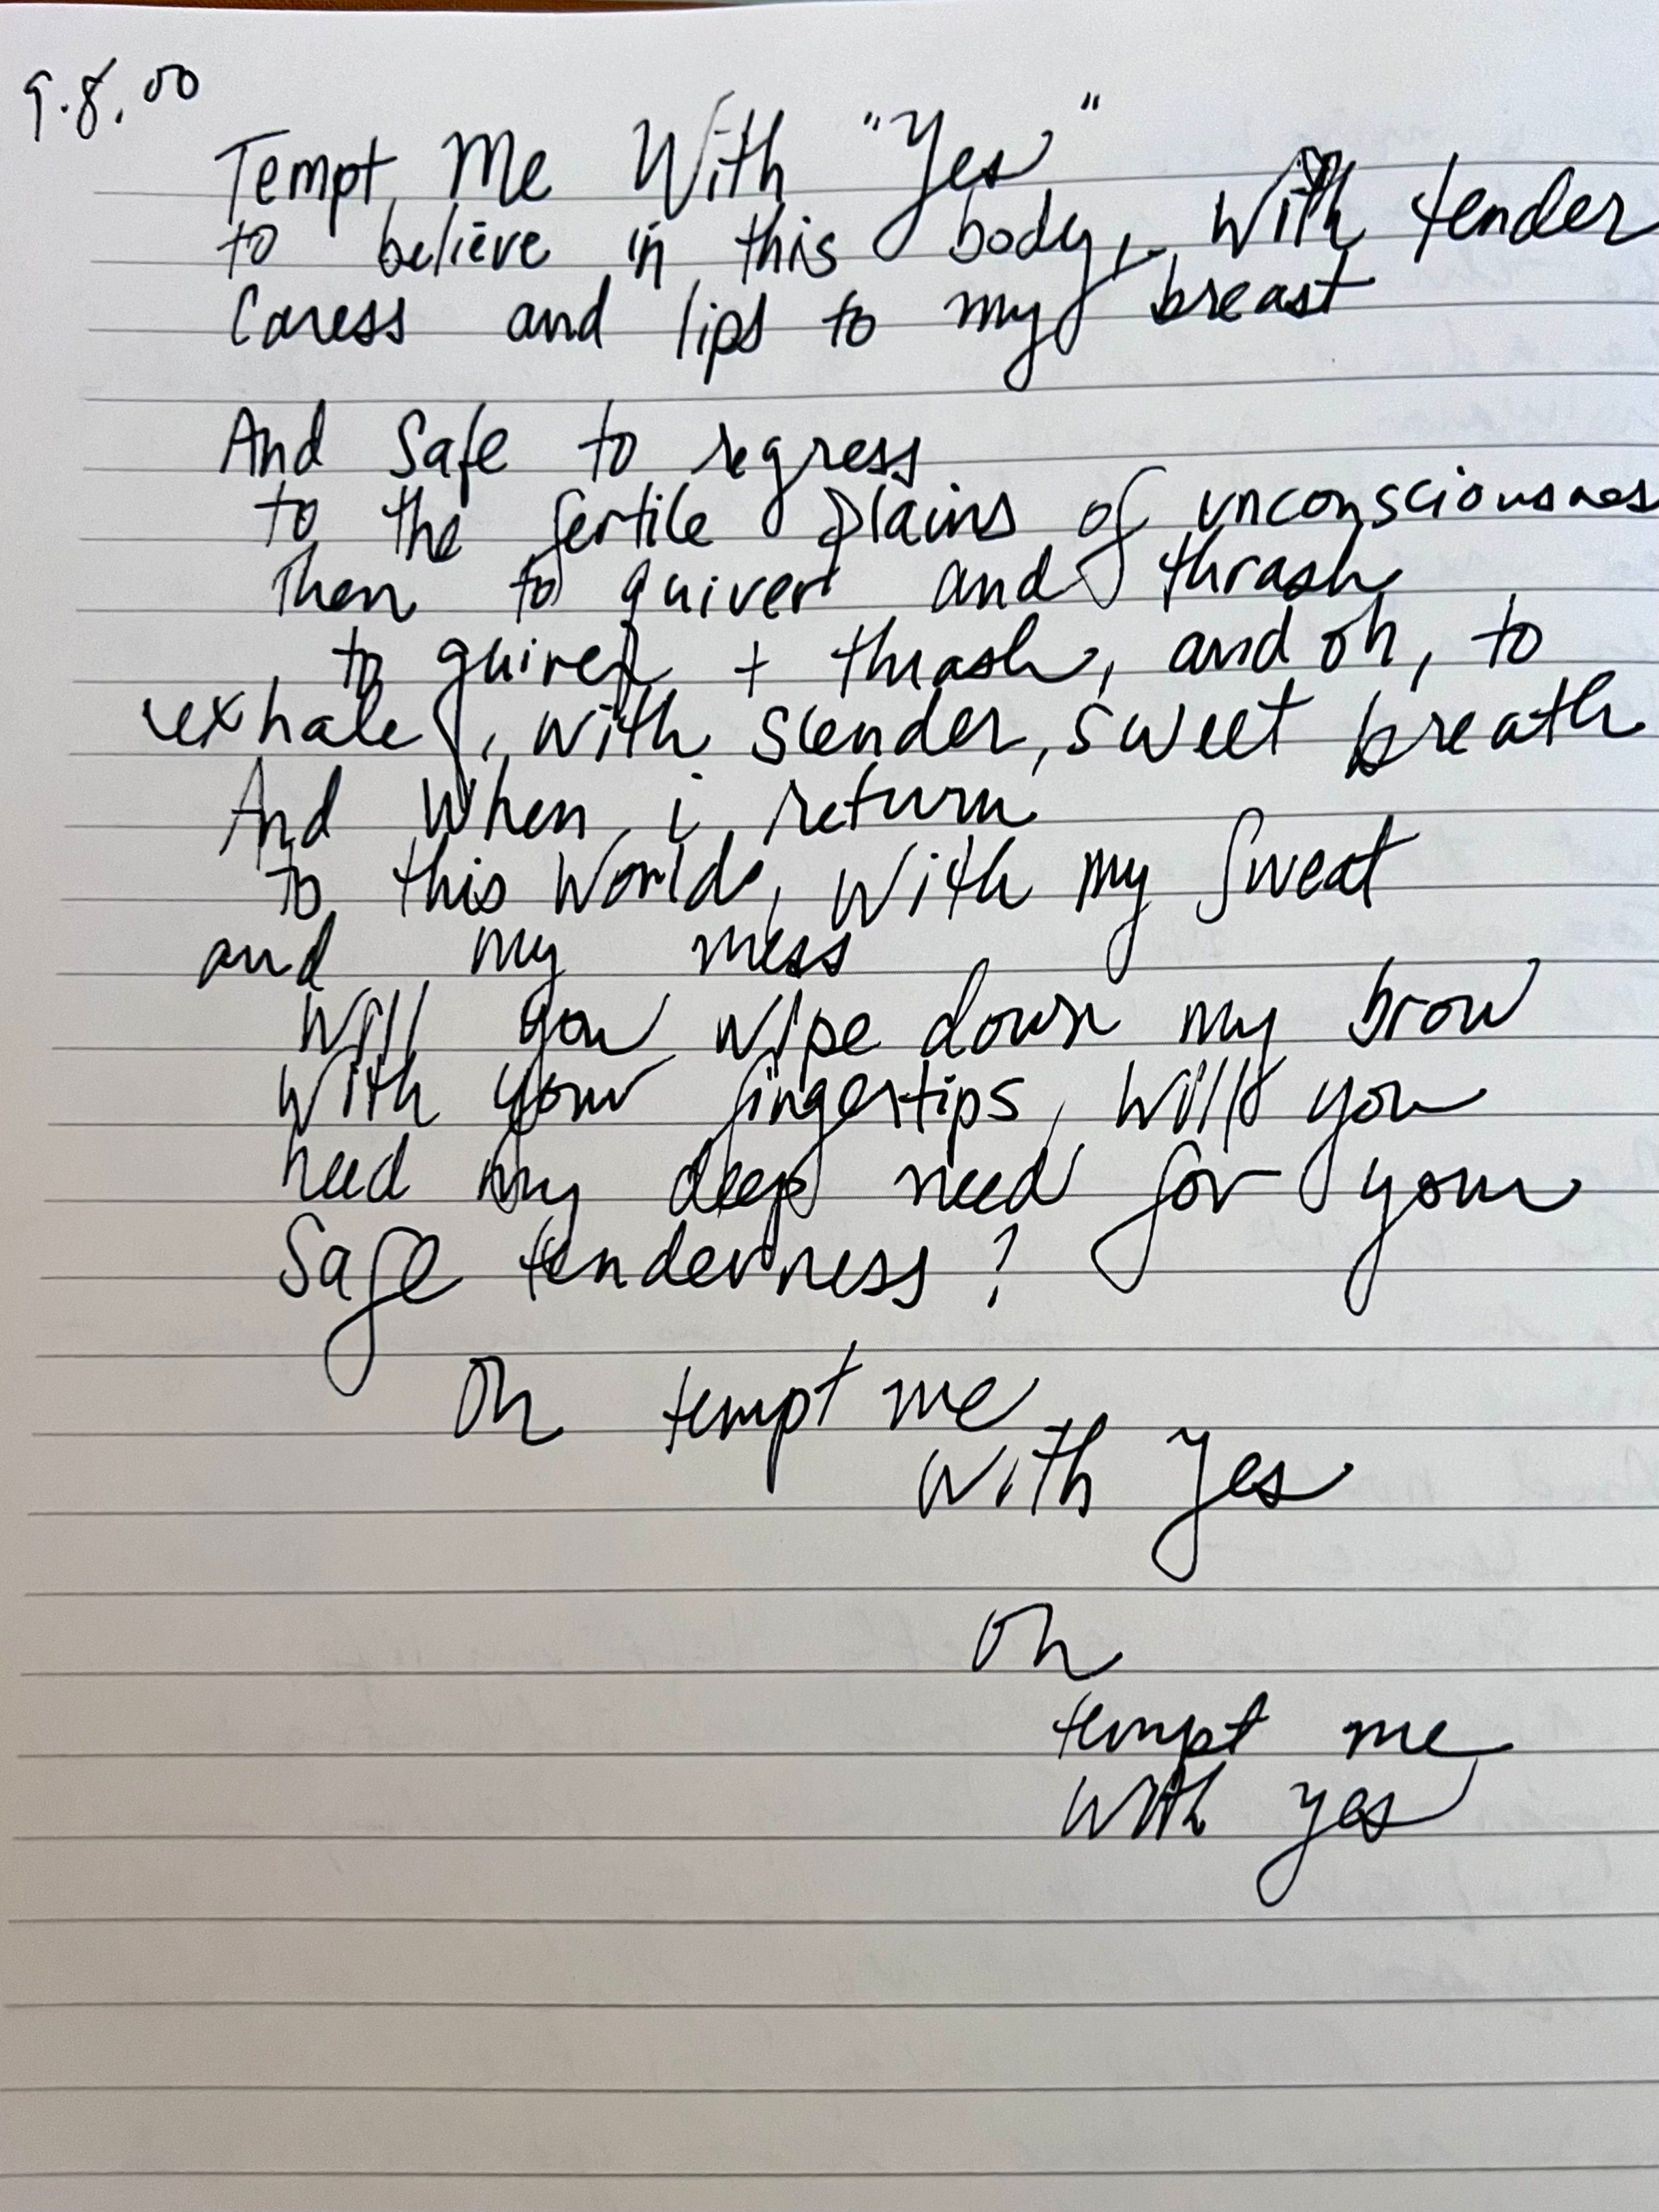 9.8.00
Tempt Me With "Yes"
to believe in this body, with tender
Caress and lips to my breast
And Safe to regress
to the fertile plains of unconsciousness
Then to quiver and thrash
to quiver + thrash, and oh, to
exhale, with slender, sweet breath
And When i return
to this World, With my Sweat
and my mess
Will you wipe down my brow
With your fingertips, Will you
heed my deep need for your
Safe tenderness?
Oh tempt me
with Yes
Oh
tempt me
with yes